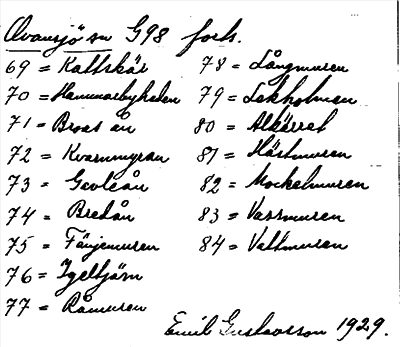 Ovansjö sn G98 forts.
69 = Kallskär
70 = Hammarbyheden
71 = Broås ån
72 = Kvarnmyran
73 = Gooleån
74 = Bredån
75 = Färjemuren
76 = Igeltjärn
77 = Råmuren
78 = Långmuren
79 = Lekholmen
80 = Alkärret
81 = Hästmuren
82 = Mockelmuren
83 = Vassmuren
84 = Valtmuren
Emil Gustavsson 1929.